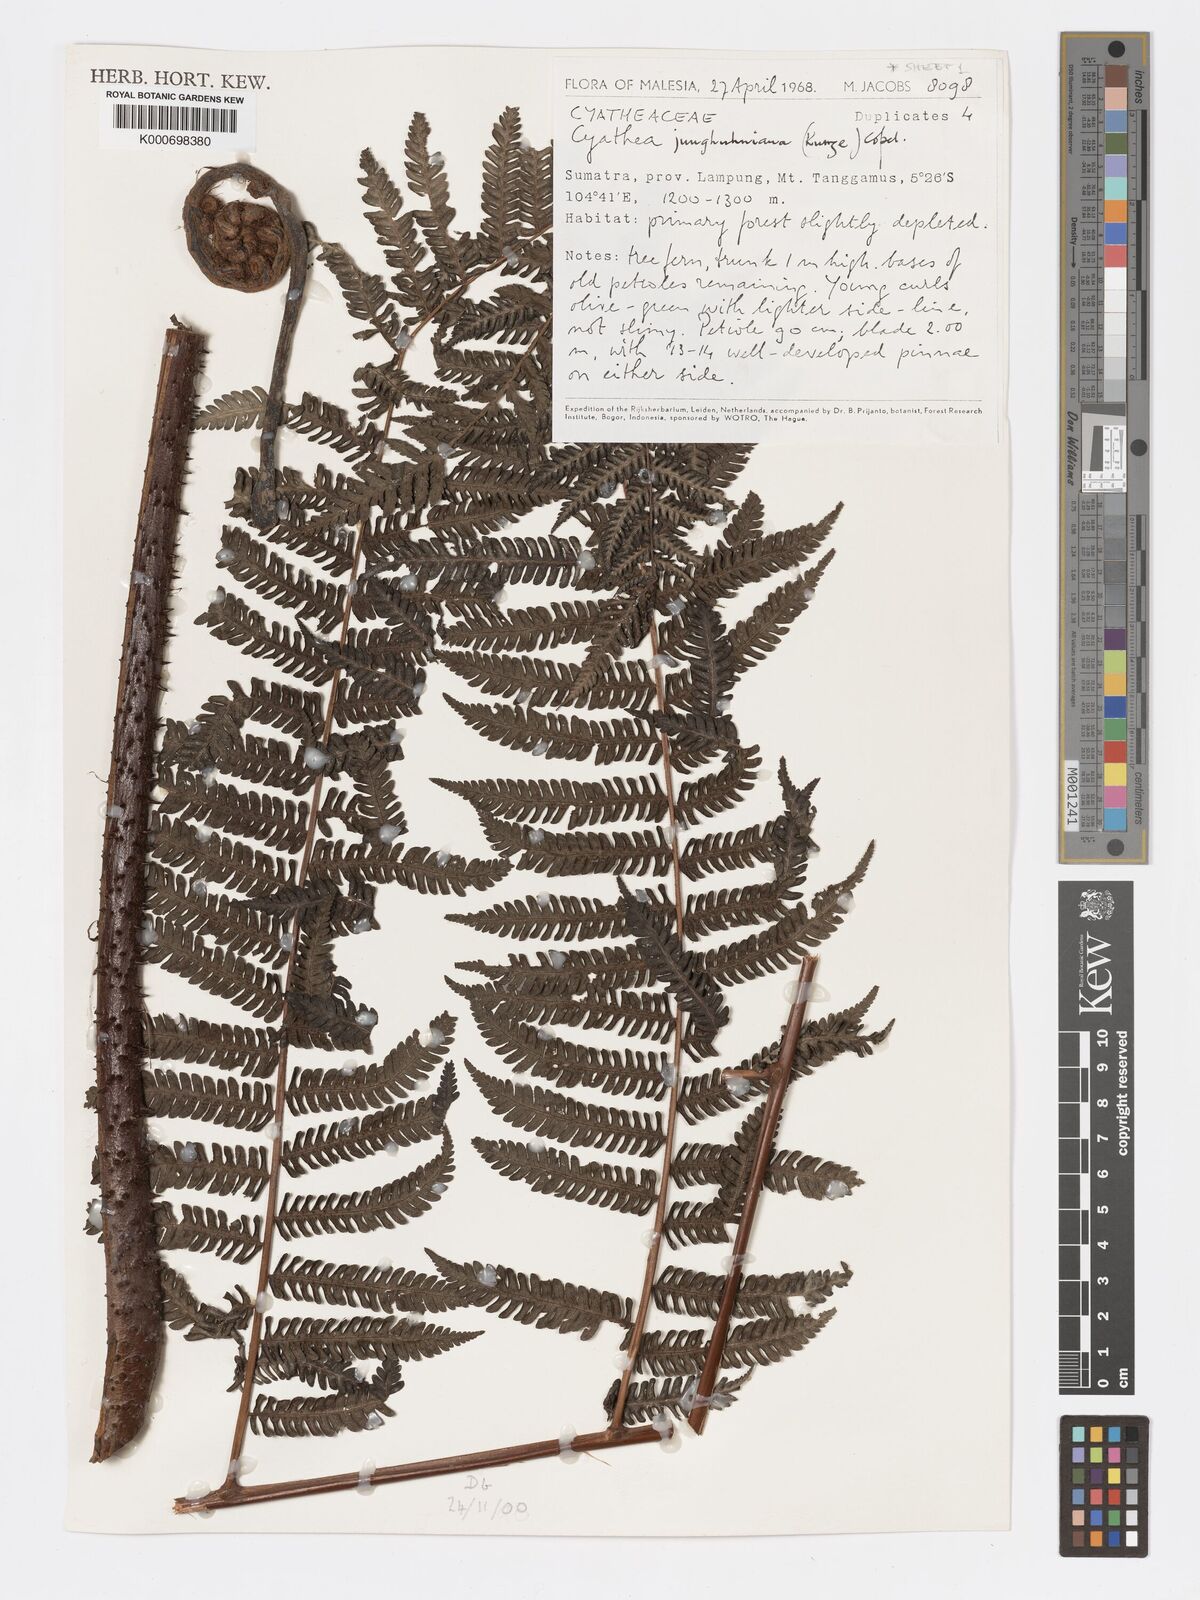 HERB. HORT. KEW.
ROYAL BOTANIC GARDENS KEW
K000698380
* SHEET 1
FLORA OF MALESIA, 27 April 1968. M. JACOBS 8098
CYATHEACEAE Duplicates 4
Cyathea junghuhniana (Kunze) Copel.
Sumatra, prov. Lampung, Mt. Tanggamus, 5°26'S
104°41'E, 1200-1300 m.
Habitat: primary forest slightly depleted.
Notes: tree fern, trunk 1 m high. bases of
old petioles remaining. Young curls
olive-green with lighter side-line,
not slimy. Petiole 90 cm; blade 2.00
m, with 13-14 well-developed pinnae
on either side.
Expedition of the Rijksherbarium, Leiden, Netherlands, accompanied by Dr. B. Prijanto, botanist, Forest Research
Institute, Bogor, Indonesia, sponsored by WOTRO, The Hague.
24/11/00
inches
centimeters
Don Williams
M001241
Royal Botanic Gardens
Kew
0 1 2 3 4 5 6 7 8 9 10
cm
copyright reserved